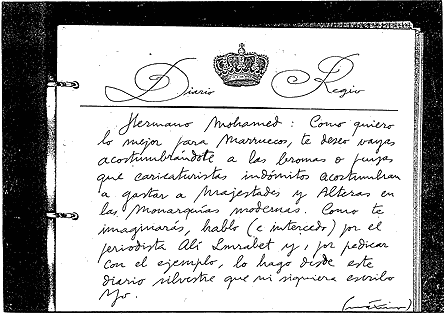 Diario Regio
Hermano Mohamed: Como quiero
lo mejor para Marruecos, te deseo vayas
acostumbrándote a las bromas o pullas
que caricaturistas indómitos acostumbran
a gastar a Majestades y Altezas en
las Monarquías modernas. Como te
imaginarás, hablo (e intercedo) por el
periodista Alí Lmrabet y, por predicar
con el ejemplo, lo hago desde este
diario silvestre que ni siquiera escribo
yo.
(máximo)